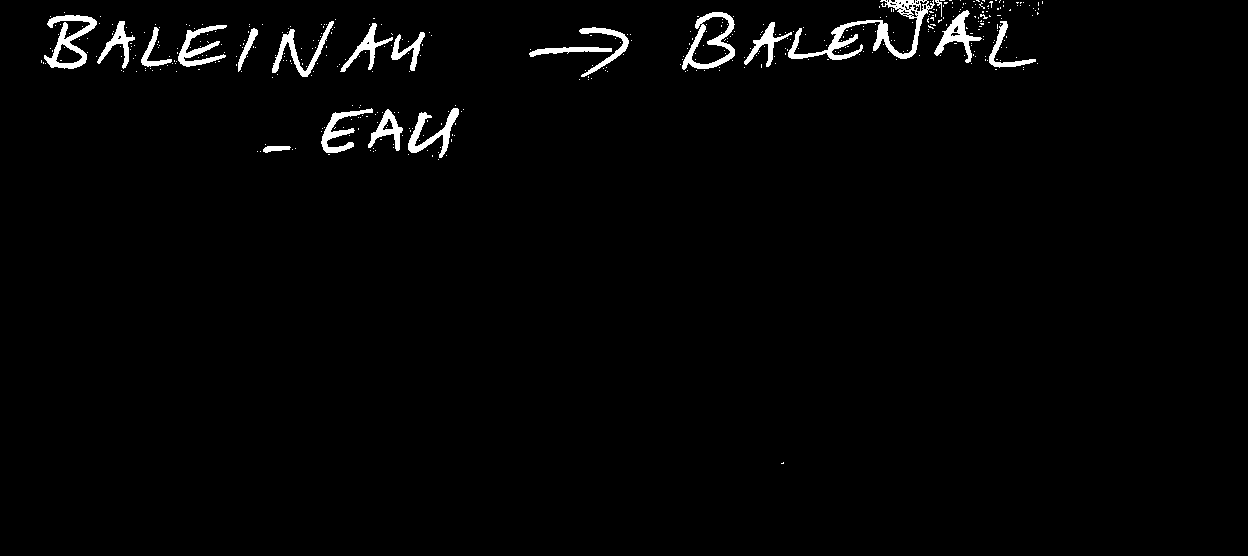 BALEINAU → BALENAL
- EAU